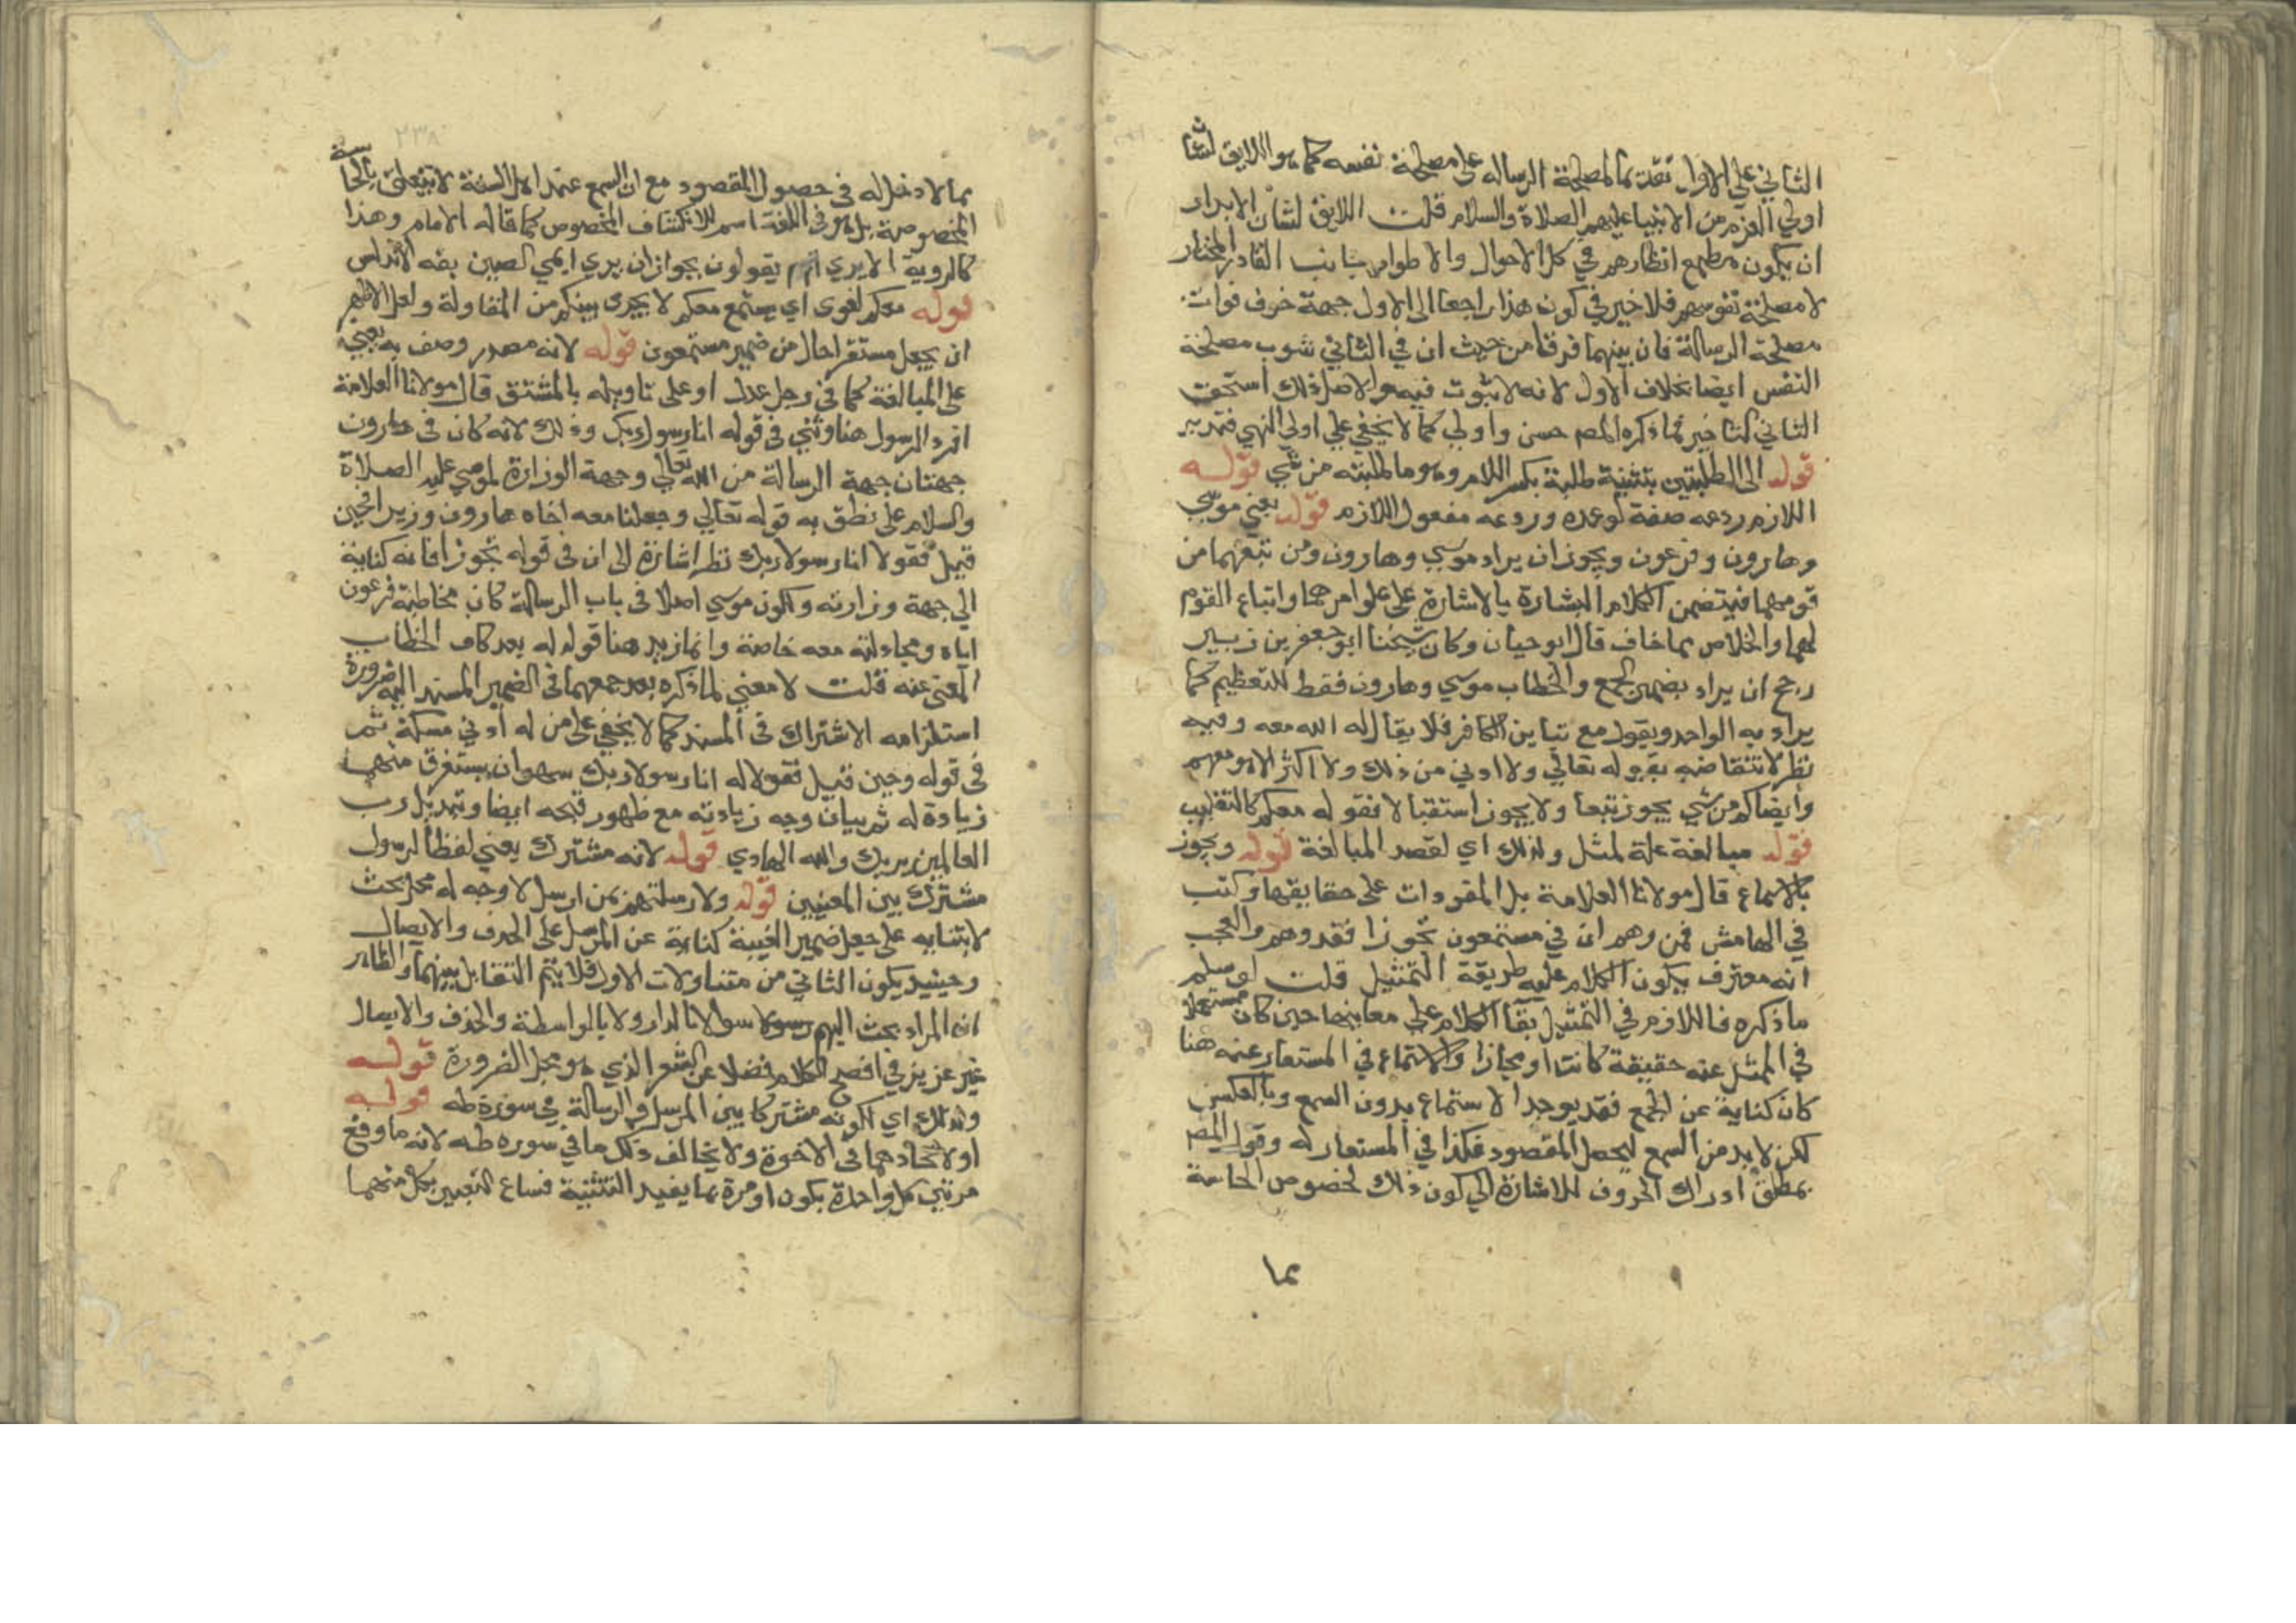 الثاني على الاول تقديما لمصلحة الرساله على مصلحة نفسه كما هو اللايق لشان
اولي العزم من الانبيا عليهم الصلاة والسلام قلت اللايق لشان الابرار
ان يكون مطمع انظارهم في كل الاحوال والاطوار جانب القادر المختار
لا مصلحة نفوسهم فلا خير في كون هذا راجعا الى الاول جهة خوف فوات
مصلحة الرسالة فان بينهما فرقا من حيث ان في الثاني شوب مصلحة
النفس ايضا بخلاف الاول لانه لا ثبوت فيه ولاصل ذلك استحق
الثاني التاخير فما ذكره المص حسن واولى كما لا يخفى على اولي النهي فتدبر
قوله الى الطلبتين بتثنية طلبة بكسر اللام وهو ما طلبته من شي قوله
اللازم ردعه صفة لوعده وردعه مفعول اللازم قوله يعني موسى
وهارون وفرعون ويجوز ان يراد موسى وهارون ومن تبعهما من
قومهما فيتضمن الكلام البشارة بالاشارة على علو امرهما واتباع القوم
لهما والخلاص مما خاف قال ابو حيان وكان شيخنا ابو جعفر بن زبير
رجح ان يراد بضمير الجمع والخطاب موسى وهارون فقط للتعظيم كما
يراد به الواحد ويقول مع تباين الكافر فلا يقال له الله معه وفيه
نظر لانتقاضه بقوله تعالى ولا ادنى من ذلك ولا اكثر الا هو معهم
وايضا كم من شي يجوز تبعا ولا يجوز استقبالا فقوله معكم كالتغليب
قوله مبالغة علة لمثل ولذلك اي لقصد المبالغة قوله ويجوز
بالاسماع قال مولانا العلامة بل المفردات على حقايقها وكتب
في الهامش فمن وهم ان في مستمعون تجوزا فقد وهم والعجب
انه معترف بكون الكلام على طريقة التمثيل قلت لو سلم
ما ذكره فاللازم في التمثيل بقا الكلام على معانيها حين كان مستعملا
في الممثل عنه حقيقة كانت او مجازا والاستماع في المستعار عنه هنا
كان كناية عن الجمع فقد يوجد الاستماع بدون السمع وبالعكس
لكن لا بد من السمع ليحصل المقصود فكذا في المستعار له وقول المص
بمطلق ادراك الحروف للاشارة الى كون ذلك لخصوص الحاسة
مما
٢٣٨
مما لا دخل له في حصول المقصود مع ان السمع عند اهل السنة لا يتعلق بالحاسة
المخصوصة بل هو في اللغة اسم للانكشاف المخصوص كما قاله الامام وهذا
كالروية الا يري انهم يقولون بجواز ان يري اعمي الصين بقه الاندلس
قوله معكم لغوى اي يستمع معكم لا يجرى بينكم من المقاولة ولعل الاظهر
ان يجعل مستقرا حال من ضمير مستمعون قوله لانه مصدر وصف به يعني
على المبالغة كما في رجل عدل او على تاويله بالمشتق قال مولانا العلامة
افرد الرسول هنا وثني في قوله انا رسولا ربك وذلك لانه كان في هارون
جهتان جهة الرسالة من الله تعالي وجهة الوزارة لموسي عليه الصلاة
والسلام على نطق به قوله تعالي وجعلنا معه اخاه هارون وزيرا فحين
قيل فقولا انا رسولا ربك نظر اشارة الى ان في قوله تجوزا فانه كناية
الي جهة وزارته ولكون موسي اصلا في باب الرسالة كان مخاطبة فرعون
اياه ومجادلته معه خاصة وانما زيد هنا قوله له بعد كاف الخطاب
المغنى عنه قلت لا معني لما ذكره بعد جمعهما في الضمير المسند اليه ضرورة
استلزامه الاشتراك في المسند كما لا يخفي على من له ادني مسكة ثم
في قوله وحين قيل فقولا له انا رسولا ربك سهو ان يستغرق منهما
زيادة له ثم بيان وجه زيادته مع ظهور قبحه ايضا وتبديل رب
العالمين بربك والله الهادي قوله لانه مشترك يعني لفظ الرسول
مشترك بين المعنيين قوله ولا رسلتهم من ارسل لا وجه له محل بحث
لابتنايه على جعل ضمير الغيبة كناية عن المرسل على الحذف والايصال
وحينيذ يكون الثاني من متناولات الاول فلا يتم التقابل بينهما والظاهر
ان المراد بحث اليهم رسولا سوالا نالدار ولا بالواسطة والحذف والايصال
غير عزيز في افصح الكلام فضلا عن الشعر الذي هو محل الضرورة قوله
ولذلك اي لكونه مشتركا بين المرسل والرسالة في سورة طه قوله
او لاتحادهما في الاخوة ولا يخالف ذلك ما في سوره طه لانه ما وقع
مرتين كل واحدة بكون او مرة بما يفيد التثنية فساغ التعبير بكل منهما